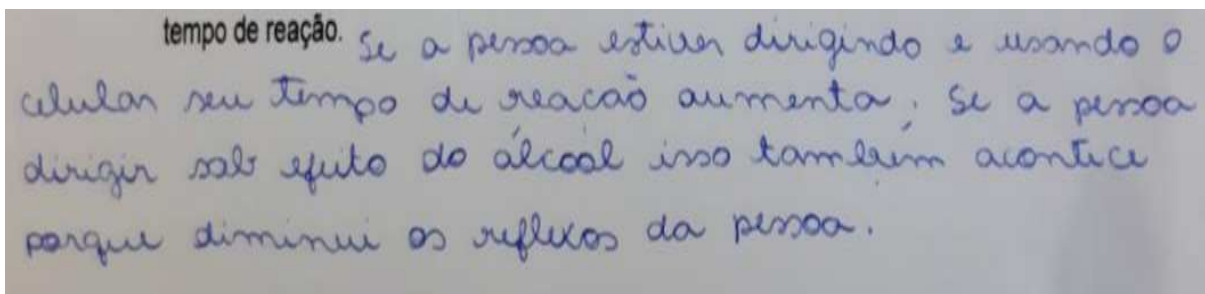 tempo de reação. Se a pessoa estiver dirigindo e usando o
celular seu tempo de reacão aumenta. Se a pessoa
dirigir sob efeito do álcool isso também acontece
porque diminui os reflexos da pessoa.